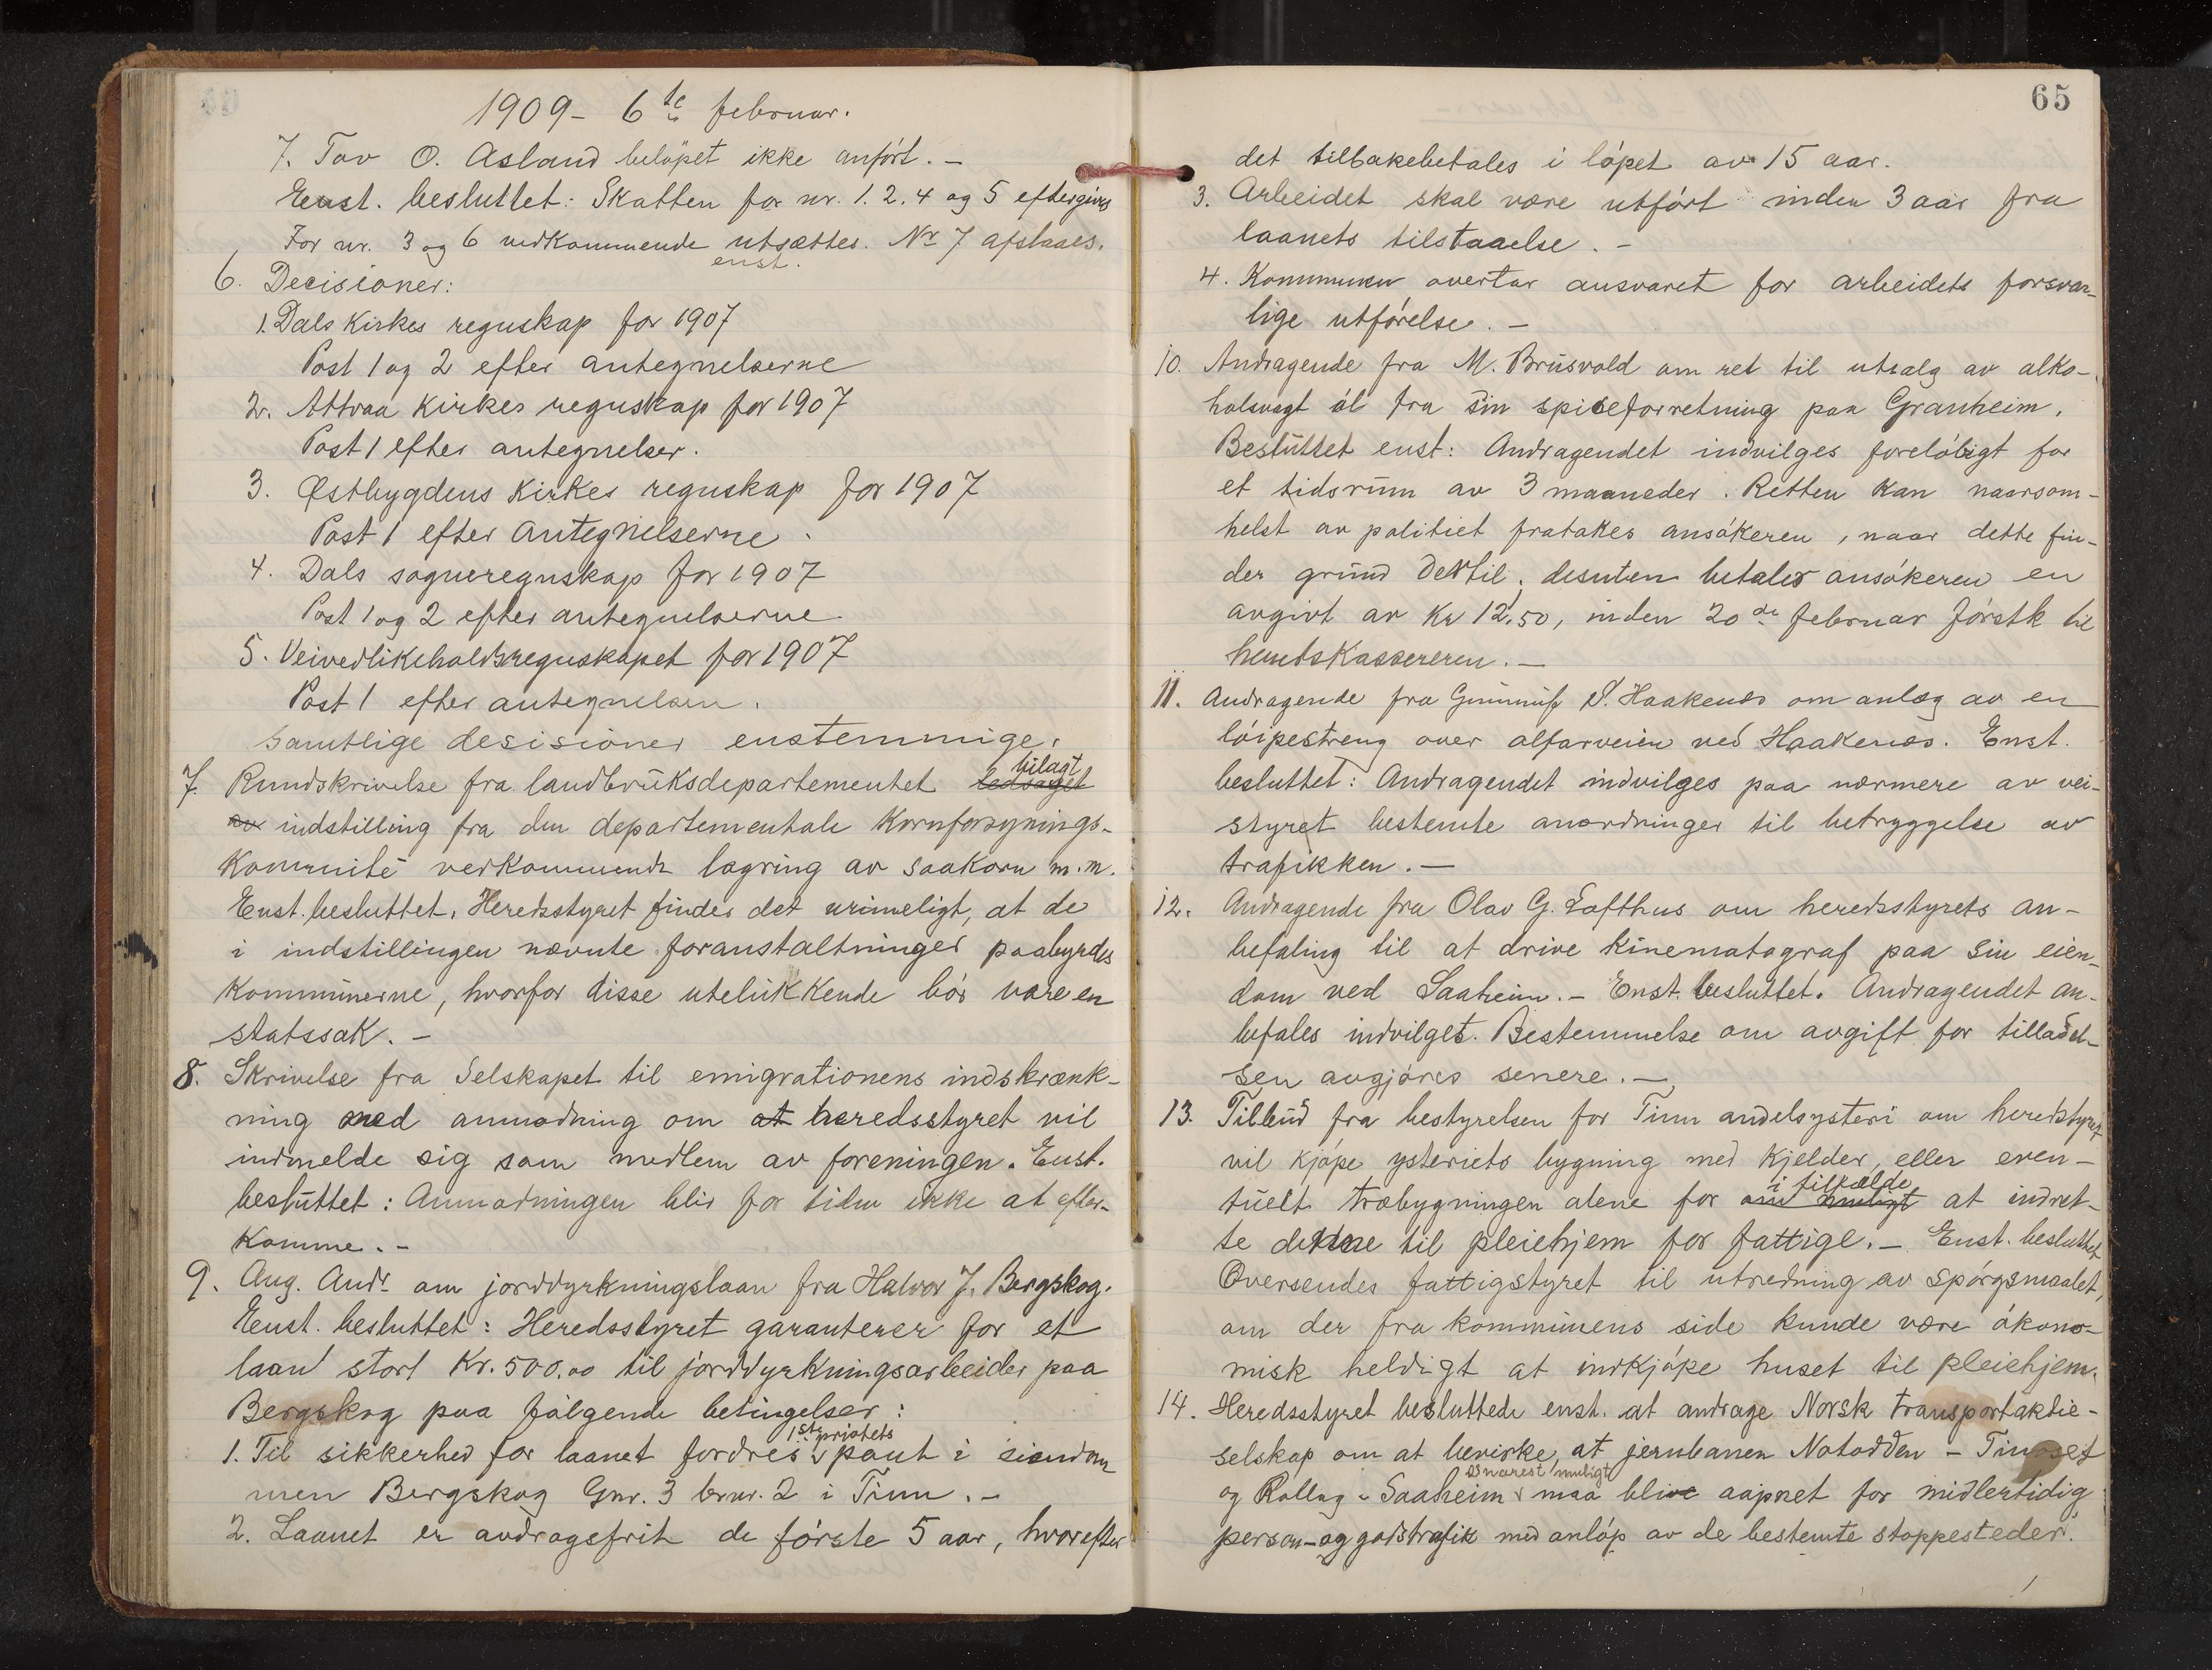 1909 - 6te februar.
7. Tov O. Asland beløpet ikke anført. -
Enst. besluttet: Skatten for nr. 1. 2. 4 og 5 eftergives
For nr. 3 og 6 vedkommende utsættes. Nr 7 afslaaes.
enst.
6. Decisioner:
1. Dals Kirkes regnskap for 1907
Post 1 og 2 efter antegnelserne
2. Attraa Kirkes regnskap for 1907
Post 1 efter antegnelser.
3. Østbygdens Kirkes regnskap for 1907
Post 1 efter Antegnelserne.
4. Dals sogneregnskap for 1907
Post 1 og 2 efter antegnelserne.
5. Veivedlikeholdsregnskapet for 1907
Post 1 efter antegnelsen.
Samtlige desisioner enstemmige.
7. Rundskrivelse fra landbruksdepartementet ledsaget bilagt
av indstilling fra den departementale Kornforsynings-
Komunité vedkommende lagring av saakorn m.m.
Enst. besluttet. Heredsstyret finder det urimeligt, at de
i indstillingen nævnte foranstaltninger paabyrdes
Kommunerne, hvorfor disse utelukkende bør være en
statssak. -
8. Skrivelse fra Selskapet til emigrationens indskrænk-
ning med anmodning om at heredsstyret vil
indmelde sig som medlem av foreningen. Enst.
besluttet: Anmodningen blir for tiden ikke at efter-
Komme. -
9. Ang. Andr om jorddyrkningslaan fra Halvor J. Bergskog.
Enst. besluttet: Heredsstyret garanterer for et
laan stort Kr. 500.00 til jorddyrkningsarbeider paa
Bergskog paa følgende betingelser:
1. Til sikkerhed for laanet fordres 1ste priotets pant i eiendom
men Bergskog Gnr. 3 brnr. 2 i Tinn. -
2. Laanet er avdragsfrit de første 5 aar, hvorefter
65
det tilbakebetales i løpet av 15 aar.
3. Arbeidet skal være utført inden 3 aar fra
laanets tilstaaelse. -
4. Kommunen overtar ansvaret for arbeidets forsvar-
lige utførelse. -
10. Andragende fra M. Brusvold om ret til utsalg av alko-
holsvagt øl fra sin spiseforretning paa Granheim.
Besluttet enst: Andragendet indvilges foreløbigt for
et tidsrum av 3 maaneder. Retten kan naarsom-
helst av politiet fratakes ansøkeren, naar dette fin-
der grund dertil, desuten betaler ansøkeren en
avgivt av Kr 12,50, inden 20de februar førstk til
heredskassereren. -
11. Andragende fra Gunnulf S. Haakenæs om anlæg av en
løipestreng over alfarveien ved Haakenæs. Enst.
besluttet: Andragendet indvilges paa nærmere av vei-
styret bestemte anordninger til betryggelse av
trafikken. -
12. Andragende fra Olav G. Lofthus om heredsstyrets an-
befaling til at drive kinematograf paa sin eien-
dom ved Saaheim. - Enst. besluttet. Andragendet an-
befales indvilget. Bestemmelse om avgift for tilladel-
sen avgjøres senere. -
13. Tilbud fra bestyrelsen for Tinn andelsysteri om heredsstyret
vil kjøpe ysteriets bygning med Kjelder, eller even-
tuelt træbygningen alene for om muligt i tilfælde at indret-
te denne til pleiehjem for fattige. - Enst. besluttet
Oversendes fattigstyret til utredning av spørgsmaalet,
om der fra kommunens side kunde være økono-
misk heldigt at indkjøpe huset til pleiehjem.
14. Heredsstyret besluttede enst. at andrage Norsk transportaktie-
selskap om at bevirke, at jernbanen Notodden - Tinoset
og Rollag - Saaheim snarest muligt maa blive aapnet for midlertidig
person- og godstrafik med anløp av de bestemte stoppesteder.